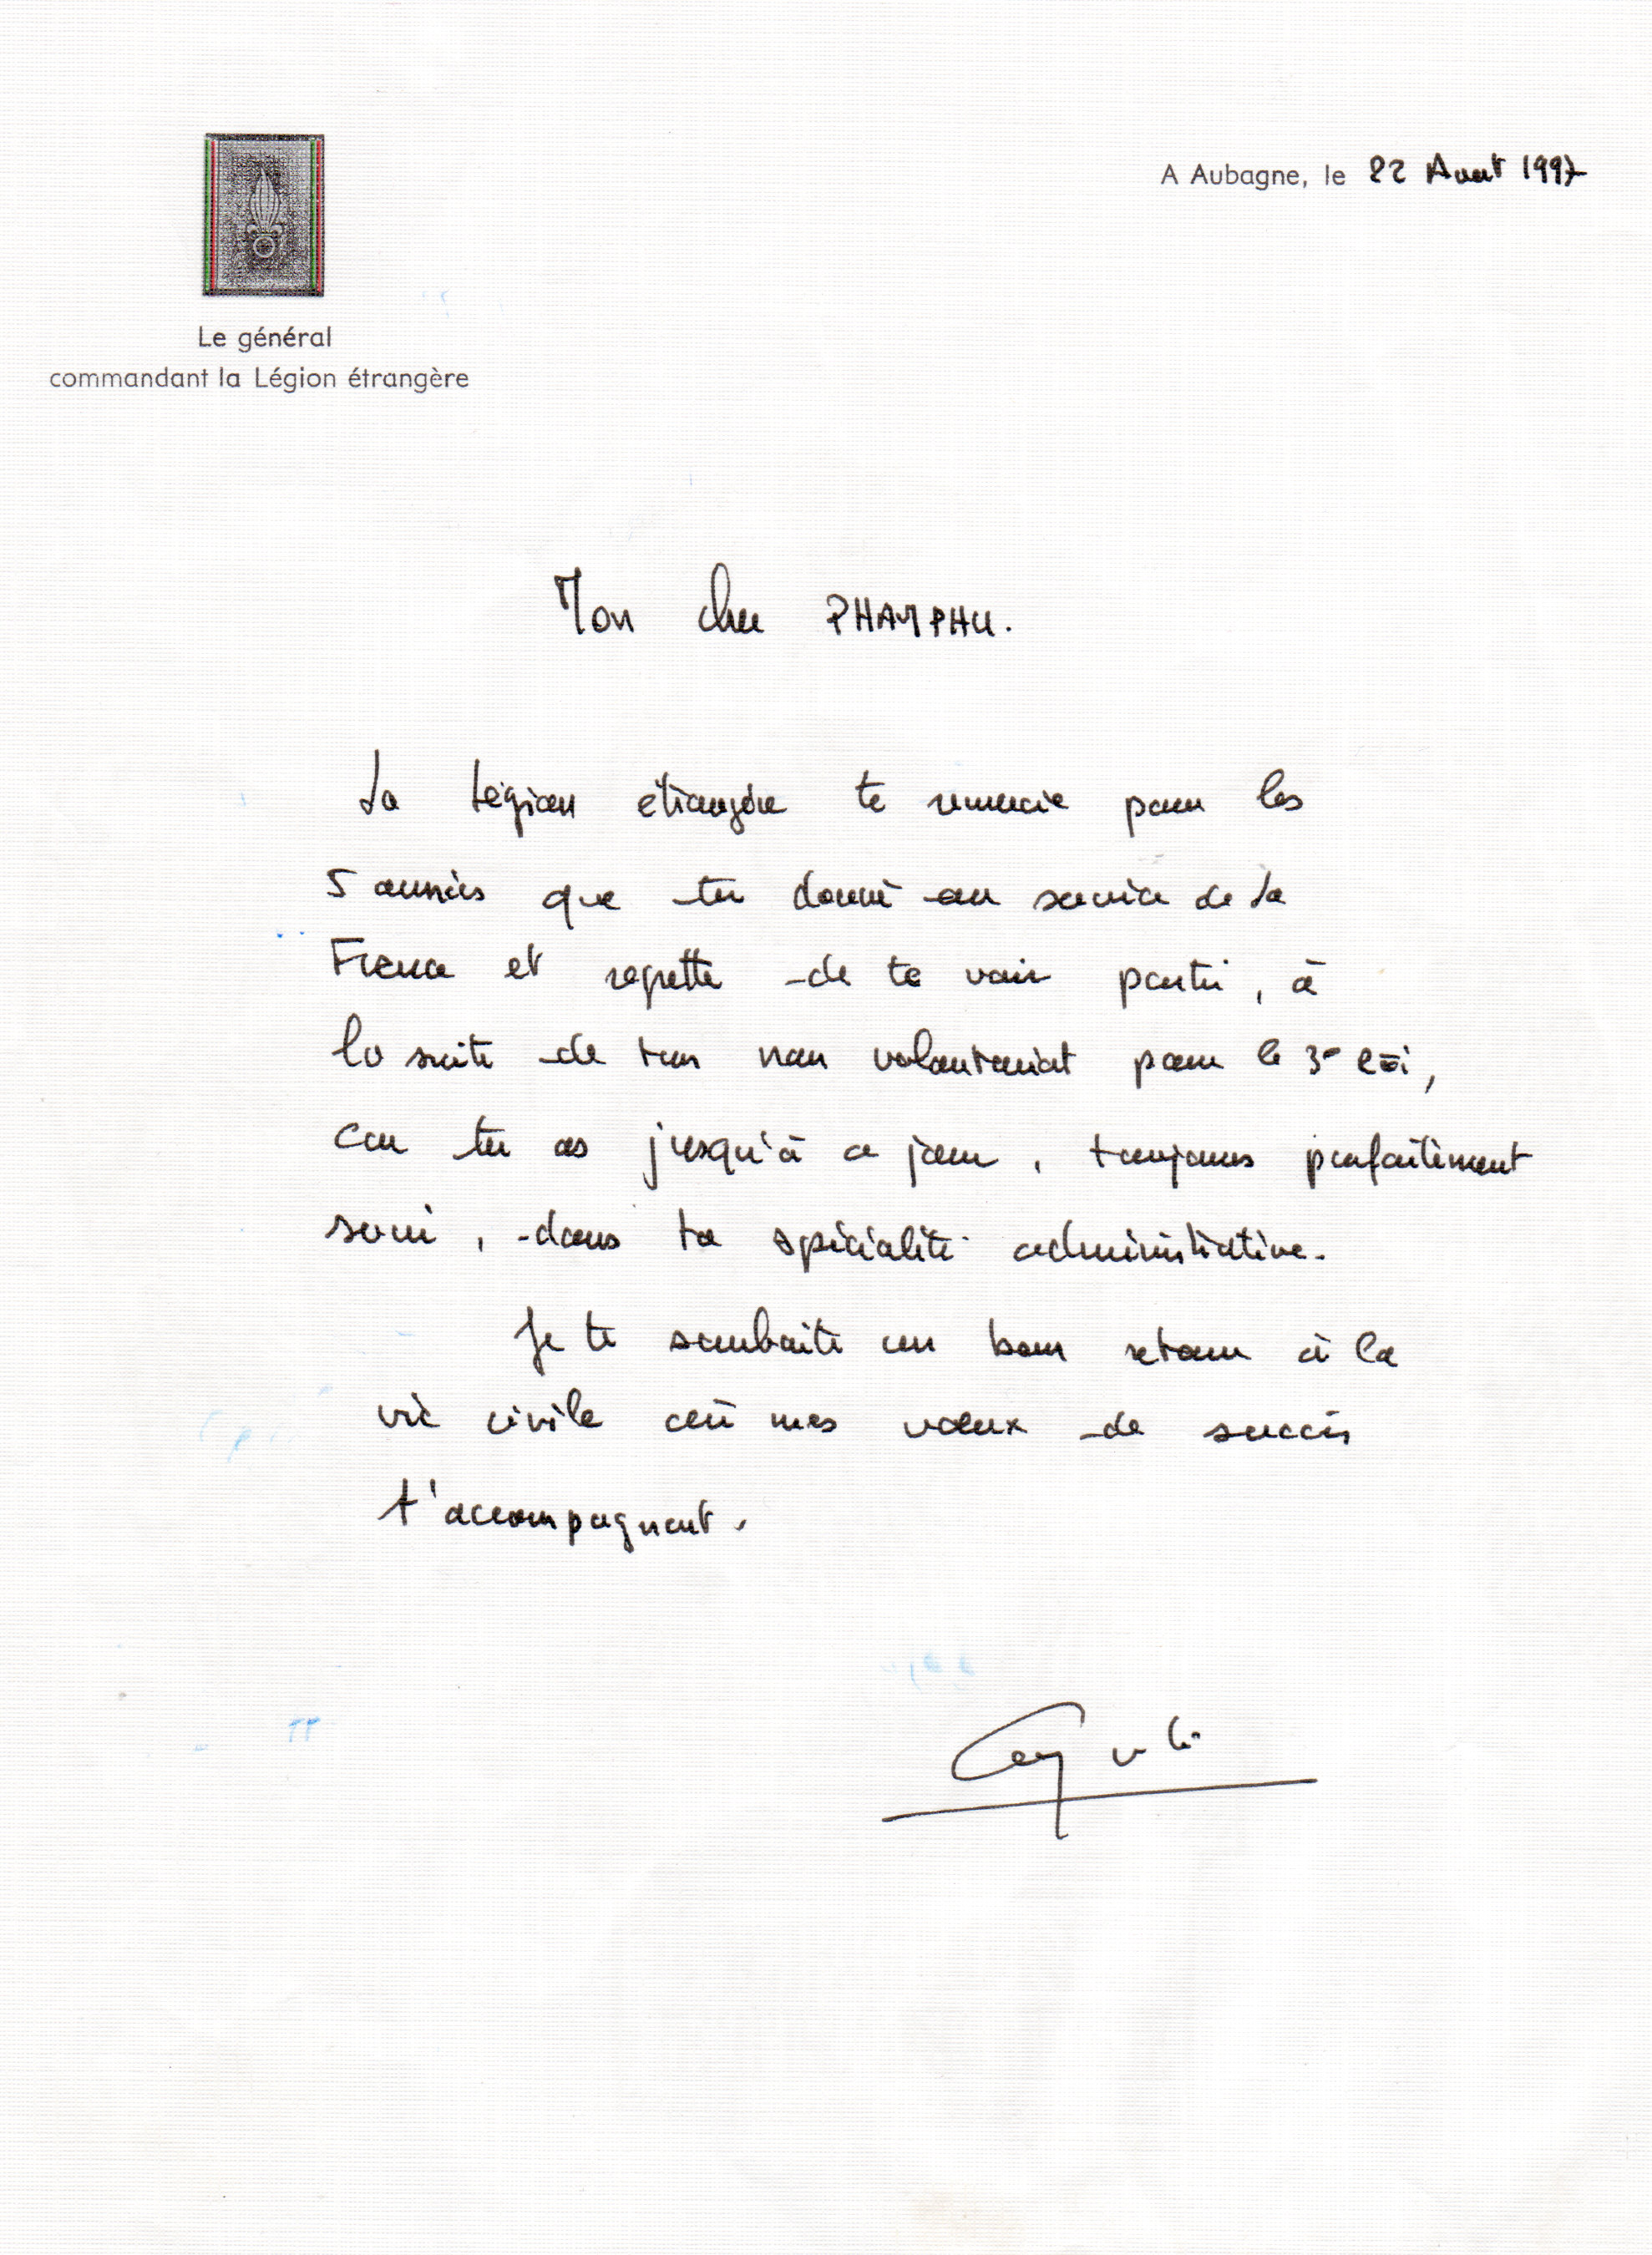 A Aubagne, le 22 Août 1997
Le général
commandant la Légion étrangère
Mon cher PHAMPHU.
La Légion étrangère te remercie pour les
5 années que tu donné au service de la
France et regrette de te voir partir, à
la suite de ton non volontariat pour le 3e REI,
car tu as jusqu'à ce jour, toujours parfaitement
servi, dans ta spécialité administrative.
Je te souhaite un bon retour à la
vie civile où mes voeux de succès
t'accompagnent.